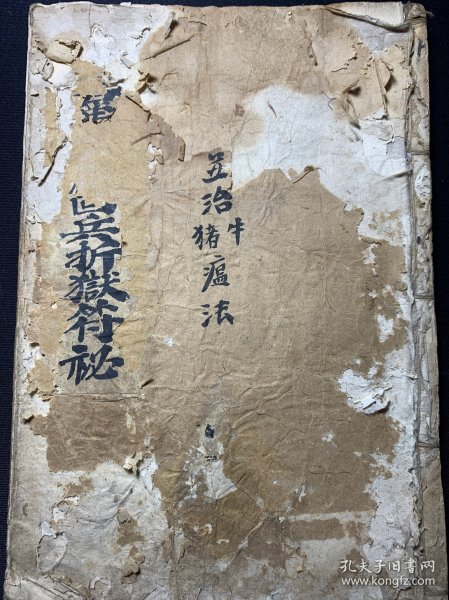 並治牛猪瘟法
兵折獄符祕
孔夫子旧书网
www.kongfz.com